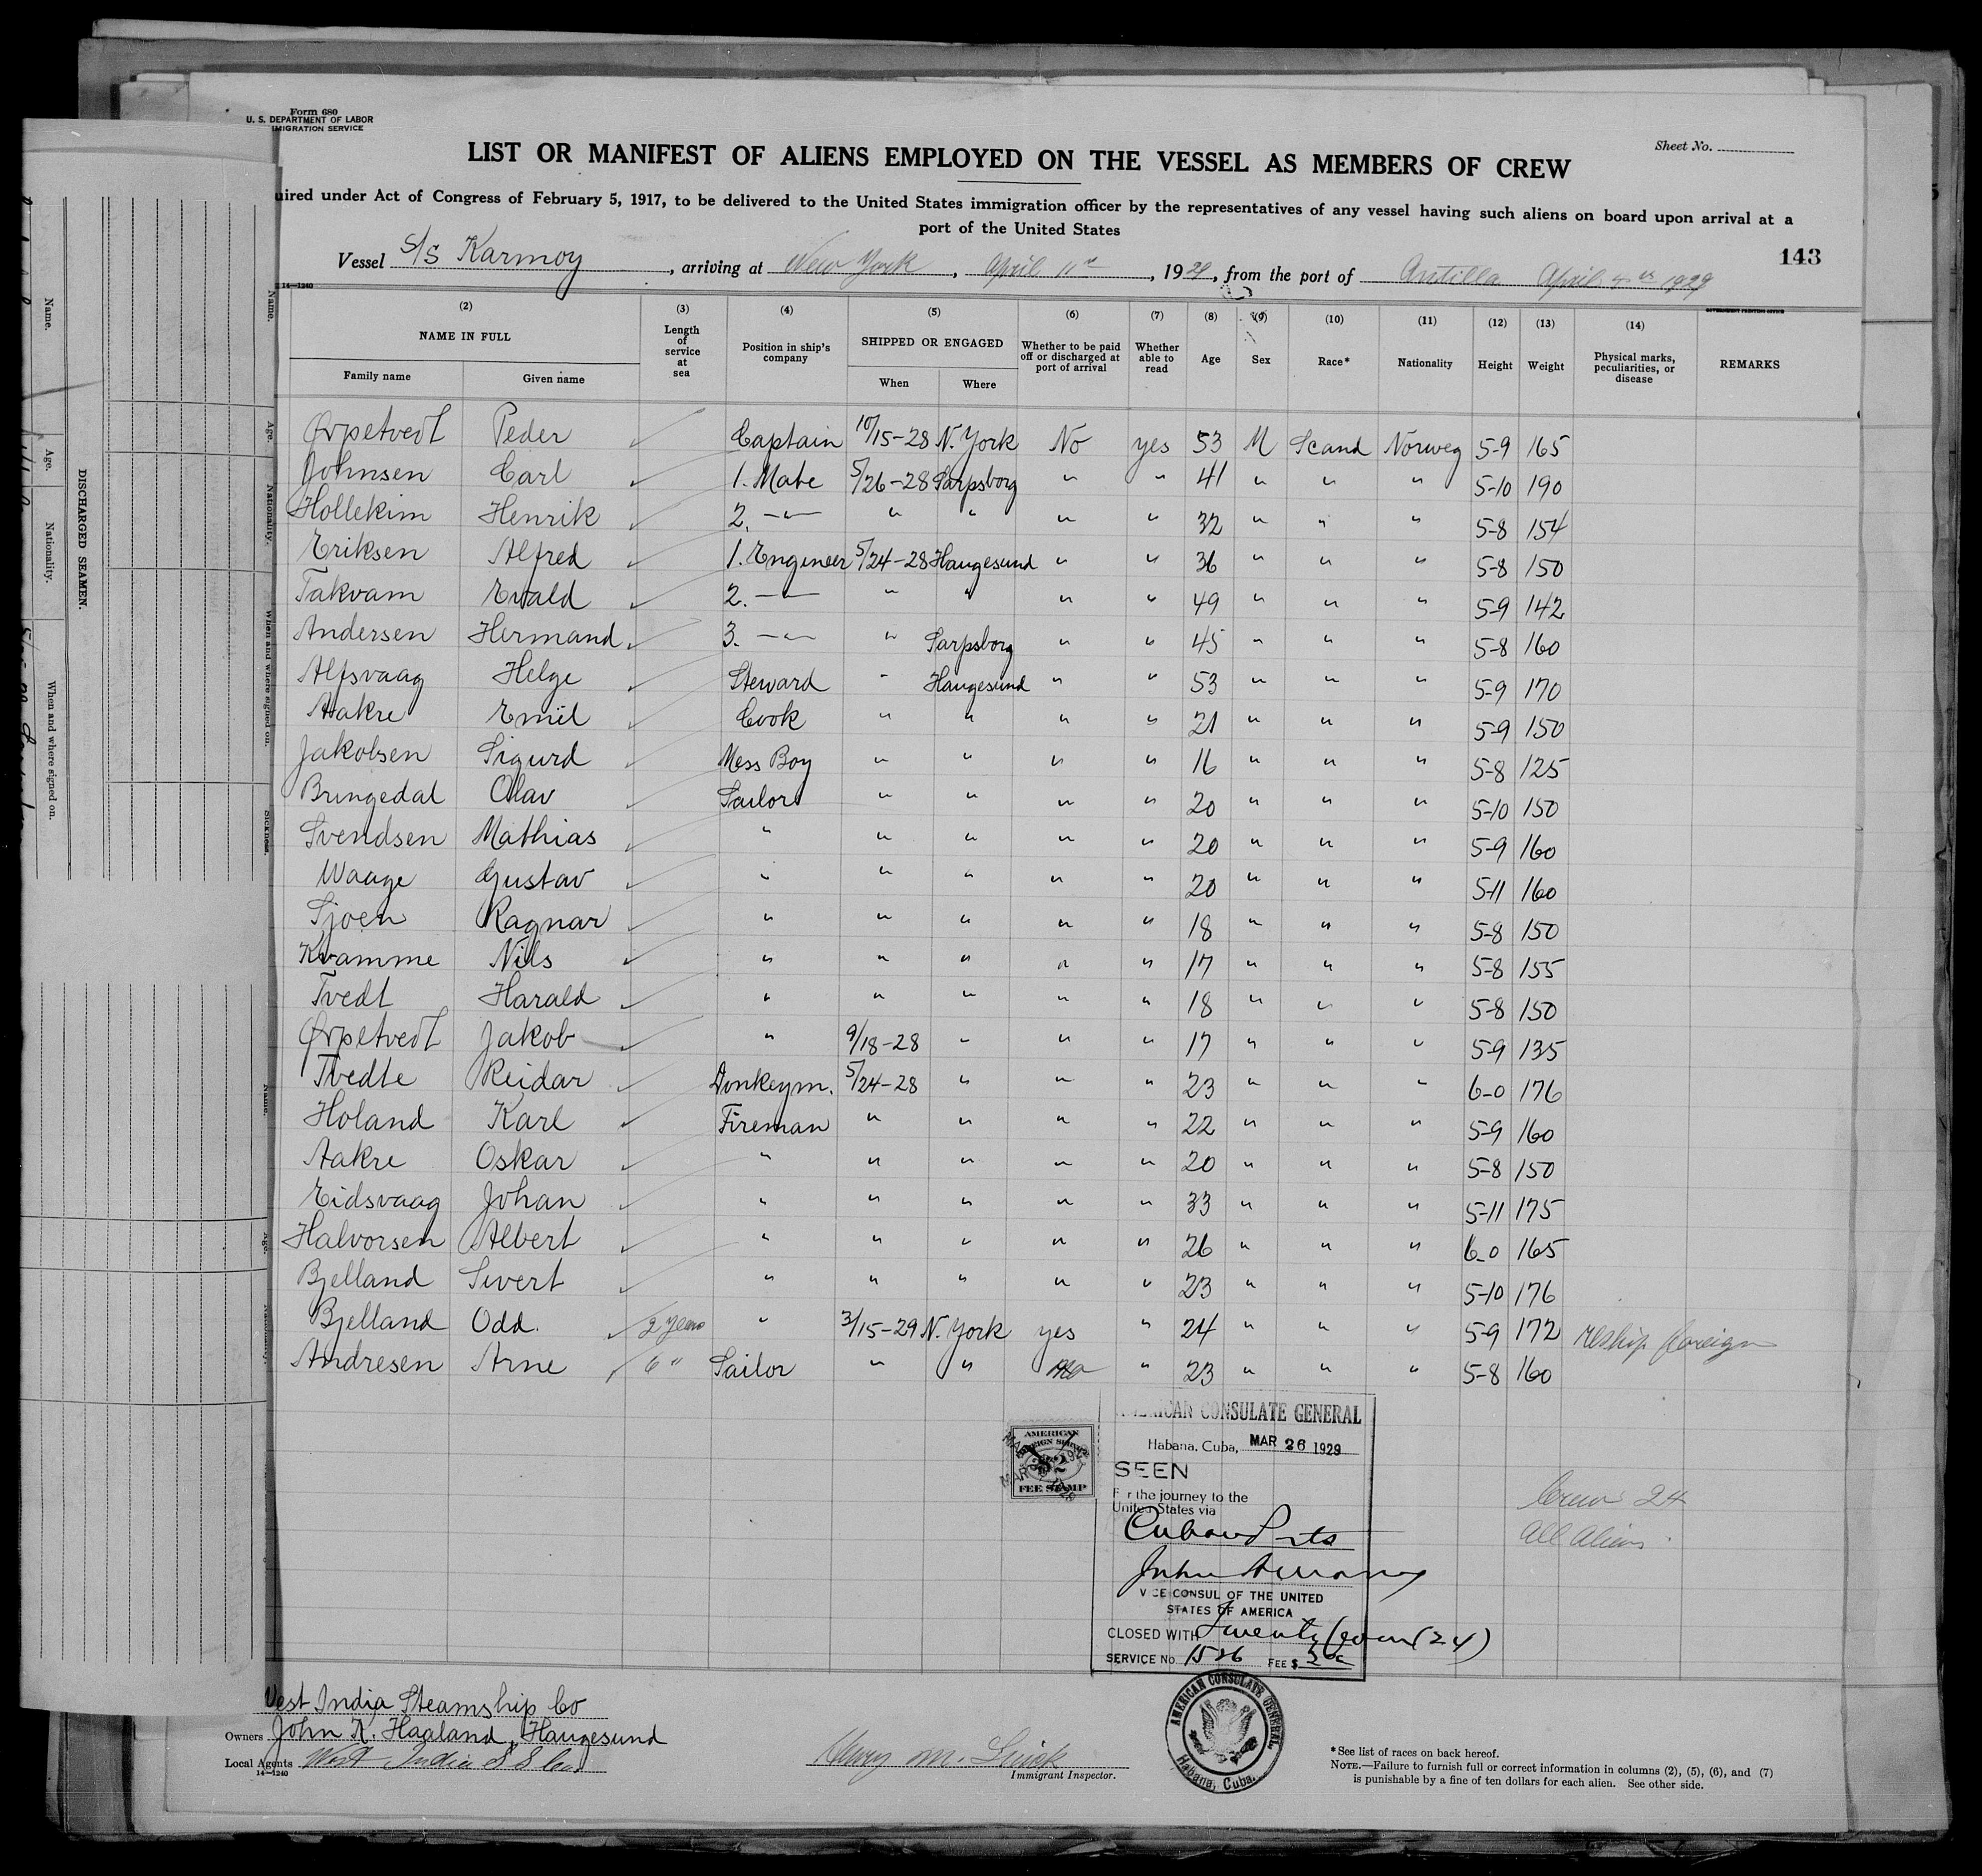 Form 680
U. S. DEPARTMENT OF LABOR
IMIGRATION SERVICE
Sheet No.
LIST OR MANIFEST OF ALIENS EMPLOYED ON THE VESSEL AS MEMBERS OF CREW
uired under Act of Congress of February 5, 1917, to be delivered to the United States immigration officer by the representatives of any vessel having such aliens on board upon arrival at a
port of the United States
143
Vessel S/S Karmoy, arriving at New York, April 11th, 1929, from the port of Antilla April 4th 1929
14—1240
GOVERNMENT PRINTING OFFICE
(2) NAME IN FULL Family name Given name (3) Length of service at sea (4) Position in ship's company (5) SHIPPED OR ENGAGED When Where (6) Whether to be paid off or discharged at port of arrival (7) Whether able to read (8) Age (9) Sex (10) Race* (11) Nationality (12) Height (13) Weight (14) Physical marks, peculiarities, or disease REMARKS
Ørpetvedt Peder Captain 10/15-28 N. York No yes 53 M Scand Norweg 5-9 165
Johnsen Carl 1. Mate 5/26-28 Sarpsborg " " 41 " " " 5-10 190
Hollekim Henrik 2. —"— " " " " 32 " " " 5-8 154
Eriksen Alfred 1. Engineer 5/24-28 Haugesund " " 36 " " " 5-8 150
Takvam Evald 2. —"— " " " " 49 " " " 5-9 142
Andersen Hermand 3. —"— " Sarpsborg " " 45 " " " 5-8 160
Alfsvaag Helge Steward " Haugesund " " 53 " " " 5-9 170
Aakre Emil Cook " " " " 21 " " " 5-9 150
Jakobsen Sigurd Mess Boy " " " " 16 " " " 5-8 125
Bringedal Olav Sailor " " " " 20 " " " 5-10 150
Svendsen Mathias " " " " " 20 " " " 5-9 160
Waage Gustav " " " " " 20 " " " 5-11 160
Sjoen Ragnar " " " " " 18 " " " 5-8 150
Kvamme Nils " " " " " 17 " " " 5-8 155
Tvedt Harald " " " " " 18 " " " 5-8 150
Ørpetvedt Jakob " 9/18-28 " " " 17 " " " 5-9 135
Tvedte Reidar Donkeym. 5/24-28 " " " 23 " " " 6-0 176
Holand Karl Fireman " " " " 22 " " " 5-9 160
Aakre Oskar " " " " " 20 " " " 5-8 150
Eidsvaag Johan " " " " " 33 " " " 5-11 175
Halvorsen Albert " " " " " 26 " " " 6-0 165
Bjelland Sivert " " " " " 23 " " " 5-10 176
Bjelland Odd. 2 years " 3/15-29 N. York yes " 24 " " " 5-9 172 reship foreign
Andresen Arne 6 " Sailor " " " 23 " " " 5-8 160
AMERICAN FOREIGN SERVICE
$2
FEE STAMP
AMERICAN CONSULATE GENERAL
Habana, Cuba, MAR 26 1929
SEEN
For the journey to the
United States via
Cuban Ports
VICE CONSUL OF THE UNITED
STATES OF AMERICA
CLOSED WITH Twenty four (24)
SERVICE No. 1526 FEE $
Crew 24
All aliens.
AMERICAN CONSULATE GENERAL
Habana, Cuba.
West India Steamship Co
Owners John K. Haaland, Haugesund
Local Agents West India S S Co.
14—1240
Immigrant Inspector.
*See list of races on back hereof.
NOTE.—Failure to furnish full or correct information in columns (2), (5), (6), and (7)
is punishable by a fine of ten dollars for each alien. See other side.
DISCHARGED SEAMEN.
Name.
Age.
Nationality.
When and where signed on.
Name.
Age.
Nationality.
When and where signed on.
Sickness.
Name.
Age.
Nationality.